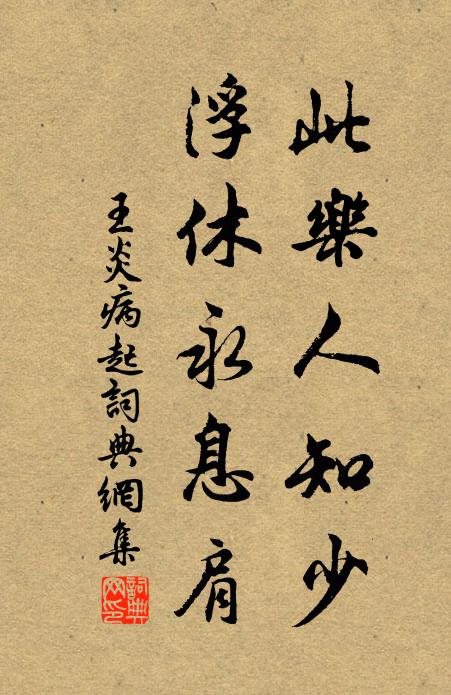 此樂人知少
浮休永息肩
王炎病起詞典網集
詞典網印